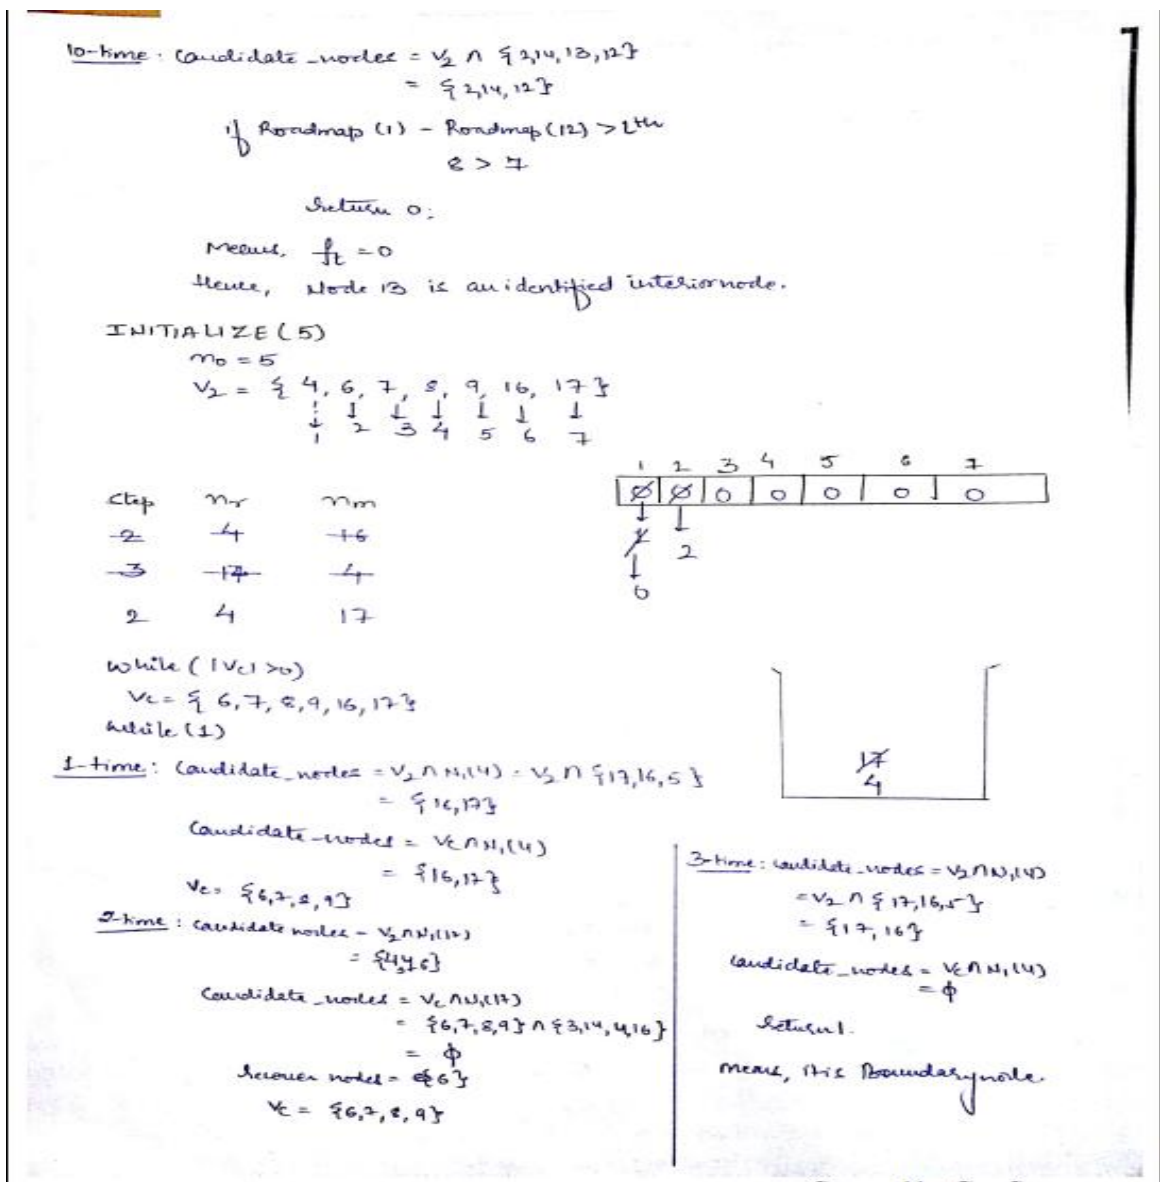 10-time: Candidate_nodes = V2 ∩ {2,14,13,12}
= {2,14,12}
if Roadmap (1) - Roadmap (12) > Lth
8 > 7
return 0;
Means, ft = 0
Hence, Node 13 is an identified interior node.
INITIALIZE (5)
n0 = 5
V2 = { 4, 6, 7, 8, 9, 16, 17 }
↓ ↓ ↓ ↓ ↓ ↓ ↓
1 2 3 4 5 6 7
1 2 3 4 5 6 7
0 0 0 0 0 0 0
↓ ↓
1 2
↓
0
Step nr nm
2 4 16
3 17 4
2 4 17
while (|Vc| > 0)
Vc = { 6, 7, 8, 9, 16, 17 }
while (1)
17
4
1-time: Candidate_nodes = V2 ∩ N1(4) = V2 ∩ {17,16,5}
= {16,17}
Candidate_nodes = Vc ∩ N1(4)
= {16,17}
Vc = {6,7,8,9}
2-time: Candidate nodes = V2 ∩ N1(17)
Candidate_nodes = Vc ∩ N1(17)
= {6,7,8,9} ∩ {3,14,4,16}
= ϕ
nodes =
Vc = {6,7,8,9}
3-time: Candidate_nodes = V2 ∩ N1(4)
= V2 ∩ {17,16,5}
= {17,16}
Candidate_nodes = Vc ∩ N1(4)
= ϕ
return 1.
means, it is Boundary node.